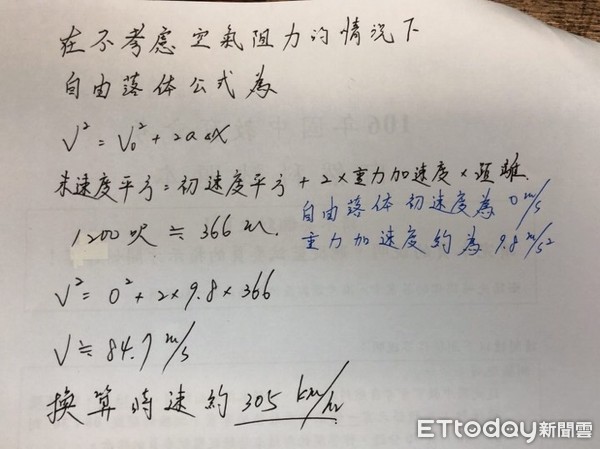 在不考慮空氣阻力的情況下
自由落体公式為
V² = V₀² + 2aΔX
末速度平方 = 初速度平方 + 2×重力加速度×距離.
自由落体初速度為 0 m/s
1200呎 ≒ 366 m.
重力加速度約為 9.8 m/s²
V² = 0² + 2×9.8×366
V ≒ 84.7 m/s
換算時速約 305 km/hr
ETtoday新聞雲